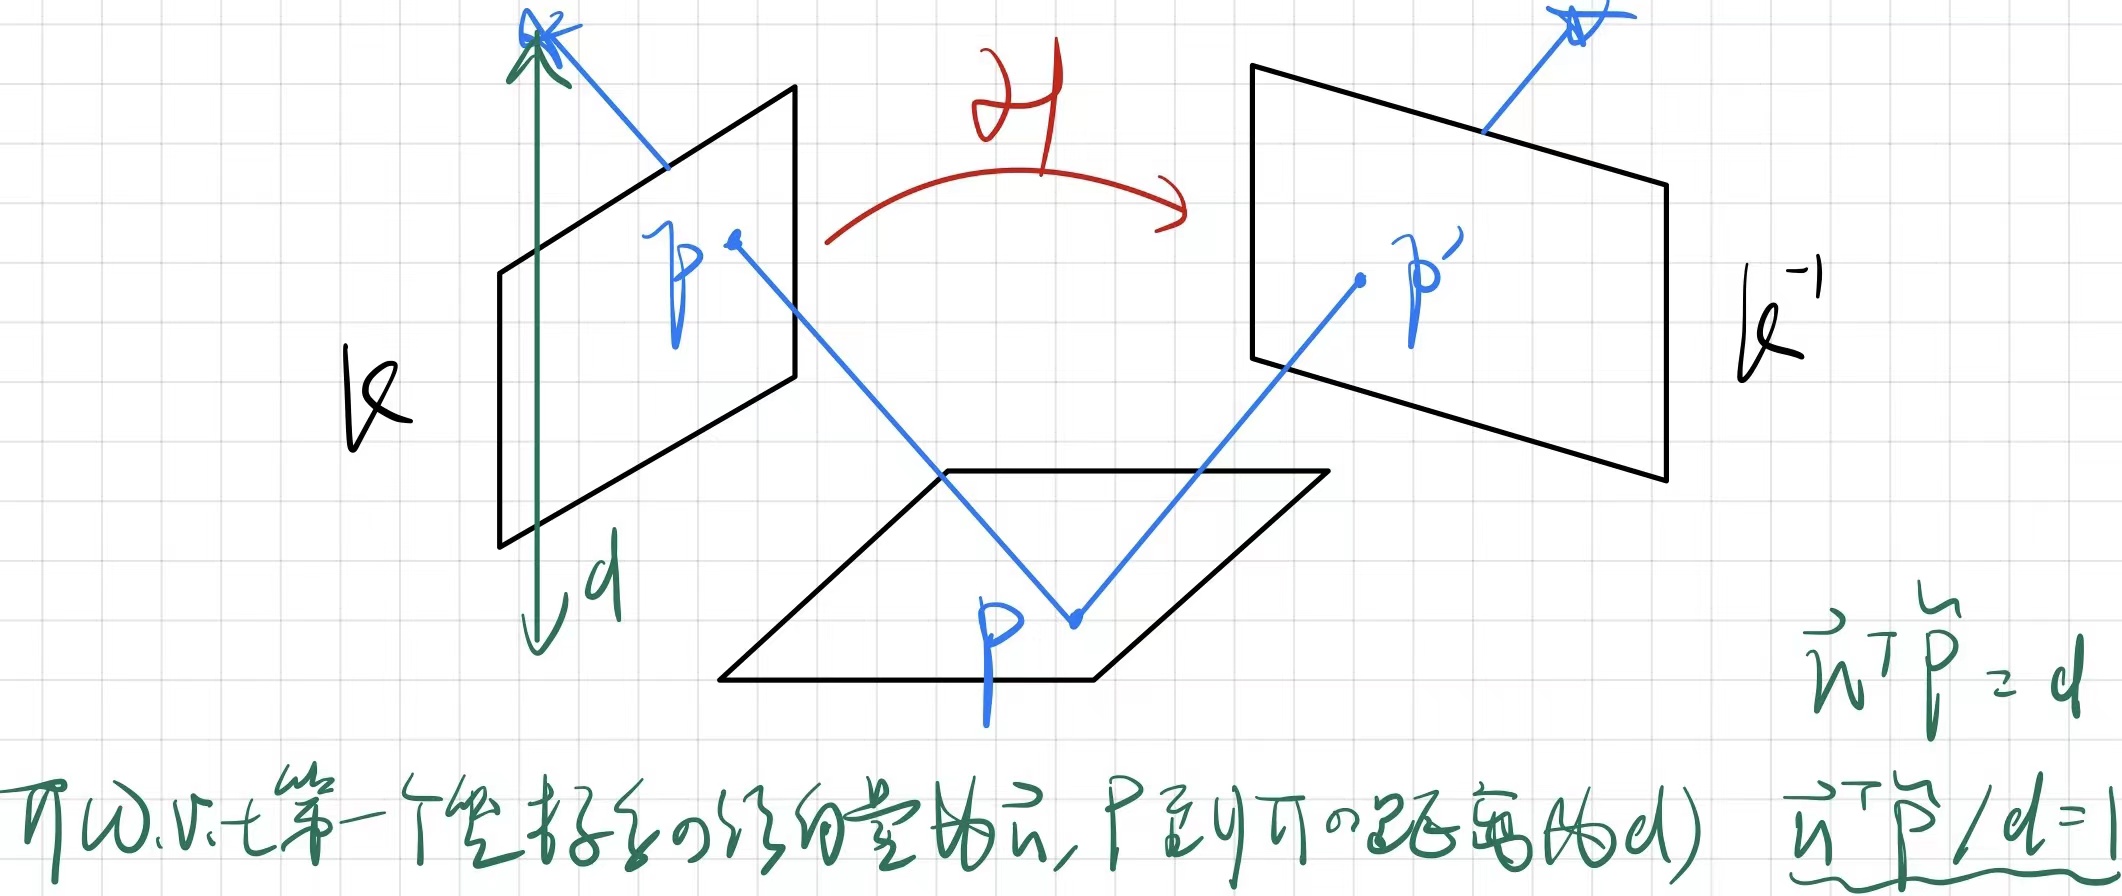 H
p
p′
K
K⁻¹
d
P
n⃗ᵀ P̃ = d
π(w.r.t 第一个坐标系の法向量为 n⃗, P 到 π の距离为 d)
n⃗ᵀ P̃ / d = 1